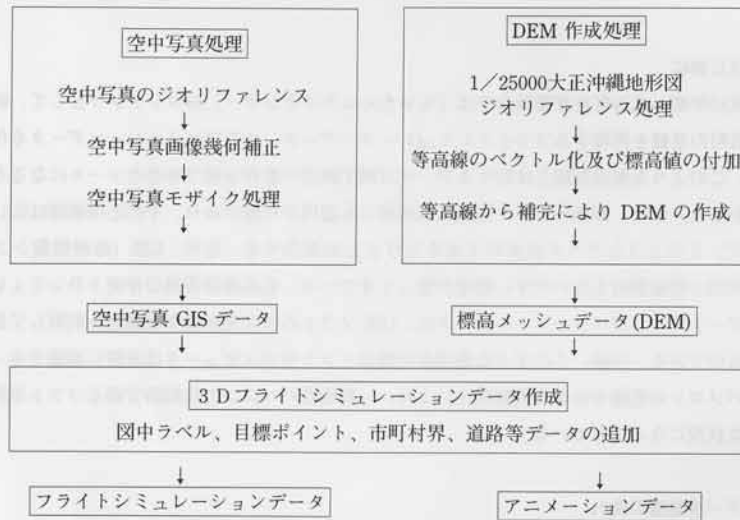 空中写真処理
空中写真のジオリファレンス
↓
空中写真画像幾何補正
↓
空中写真モザイク処理
↓
空中写真 GIS データ
DEM 作成処理
1／25000大正沖縄地形図
ジオリファレンス処理
↓
等高線のベクトル化及び標高値の付加
↓
等高線から補完により DEM の作成
↓
標高メッシュデータ(DEM)
↓
↓
3Dフライトシミュレーションデータ作成
図中ラベル、目標ポイント、市町村界、道路等データの追加
↓
↓
フライトシミュレーションデータ
アニメーションデータ